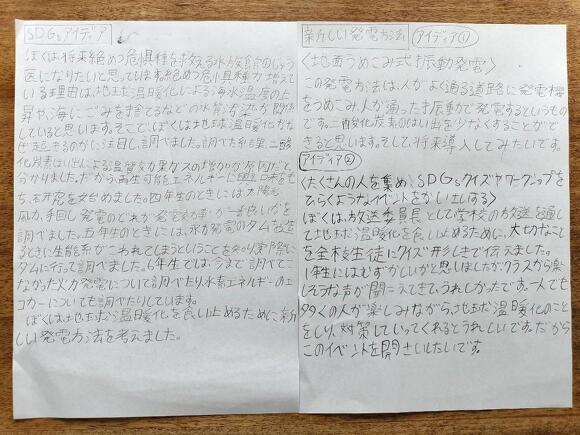 SDGsアイディア
ぼくは、将来絶めつ危惧種を救える水族館のじゅう
医になりたいと思っています。絶めつ危惧種が増えて
いる理由は、地球温暖化による海水温度の上
昇や、海にごみを捨てるなどの水質汚染が関係
していると思います。そこで、ぼくは地球温暖化がなぜ
起きるのかに注目し、調べました。調べた結果、二酸
化炭素はい出による温室効果ガスの増加が原因だと
分かりました。だから再生可能エネルギーに興味をも
ち、研究を始めました。四年生のときには太陽光
風力、手回し発電のどれが発電効率が一番良いかを
調べました。五年生のときには、水力発電のダムを造
るときに生態系がこわれてしまうということを知り実際に
ダムに行って調べました。6年生では、今まで調べてこ
なかった火力発電について調べたり水素エネルギーのエ
コカーについても調べたりしています。
ぼくは地球温暖化を食い止めるために新
しい発電方法を考えました。
新しい発電方法 アイディア①
〈地面うめこみ式振動発電〉
この発電方法は、人がよく通る道路に発電機
をうめこみ人が通った振動で発電するというもの
です。二酸化炭素のはい出を少なくすることがで
きると思います。そして、将来導入してみたいです。
アイディア②
〈たくさんの人を集め、SDGsクイズやワークショップを
ひらくようなイベントをかい出する〉
ぼくは、放送委員として学校の放送を通し
て地球温暖化を食い止めるために、大切なこと
を全校生徒にクイズ形しきで伝えました。
1年生にはむずかしいかと思いましたが、クラスから楽
しそうな声が聞こえてきて、うれしかったです。一人でも
多くの人が楽しみながら、地球温暖化のこと
をしり、対策していってくれるとうれしいです。だから
このイベントを開さいしたいです。